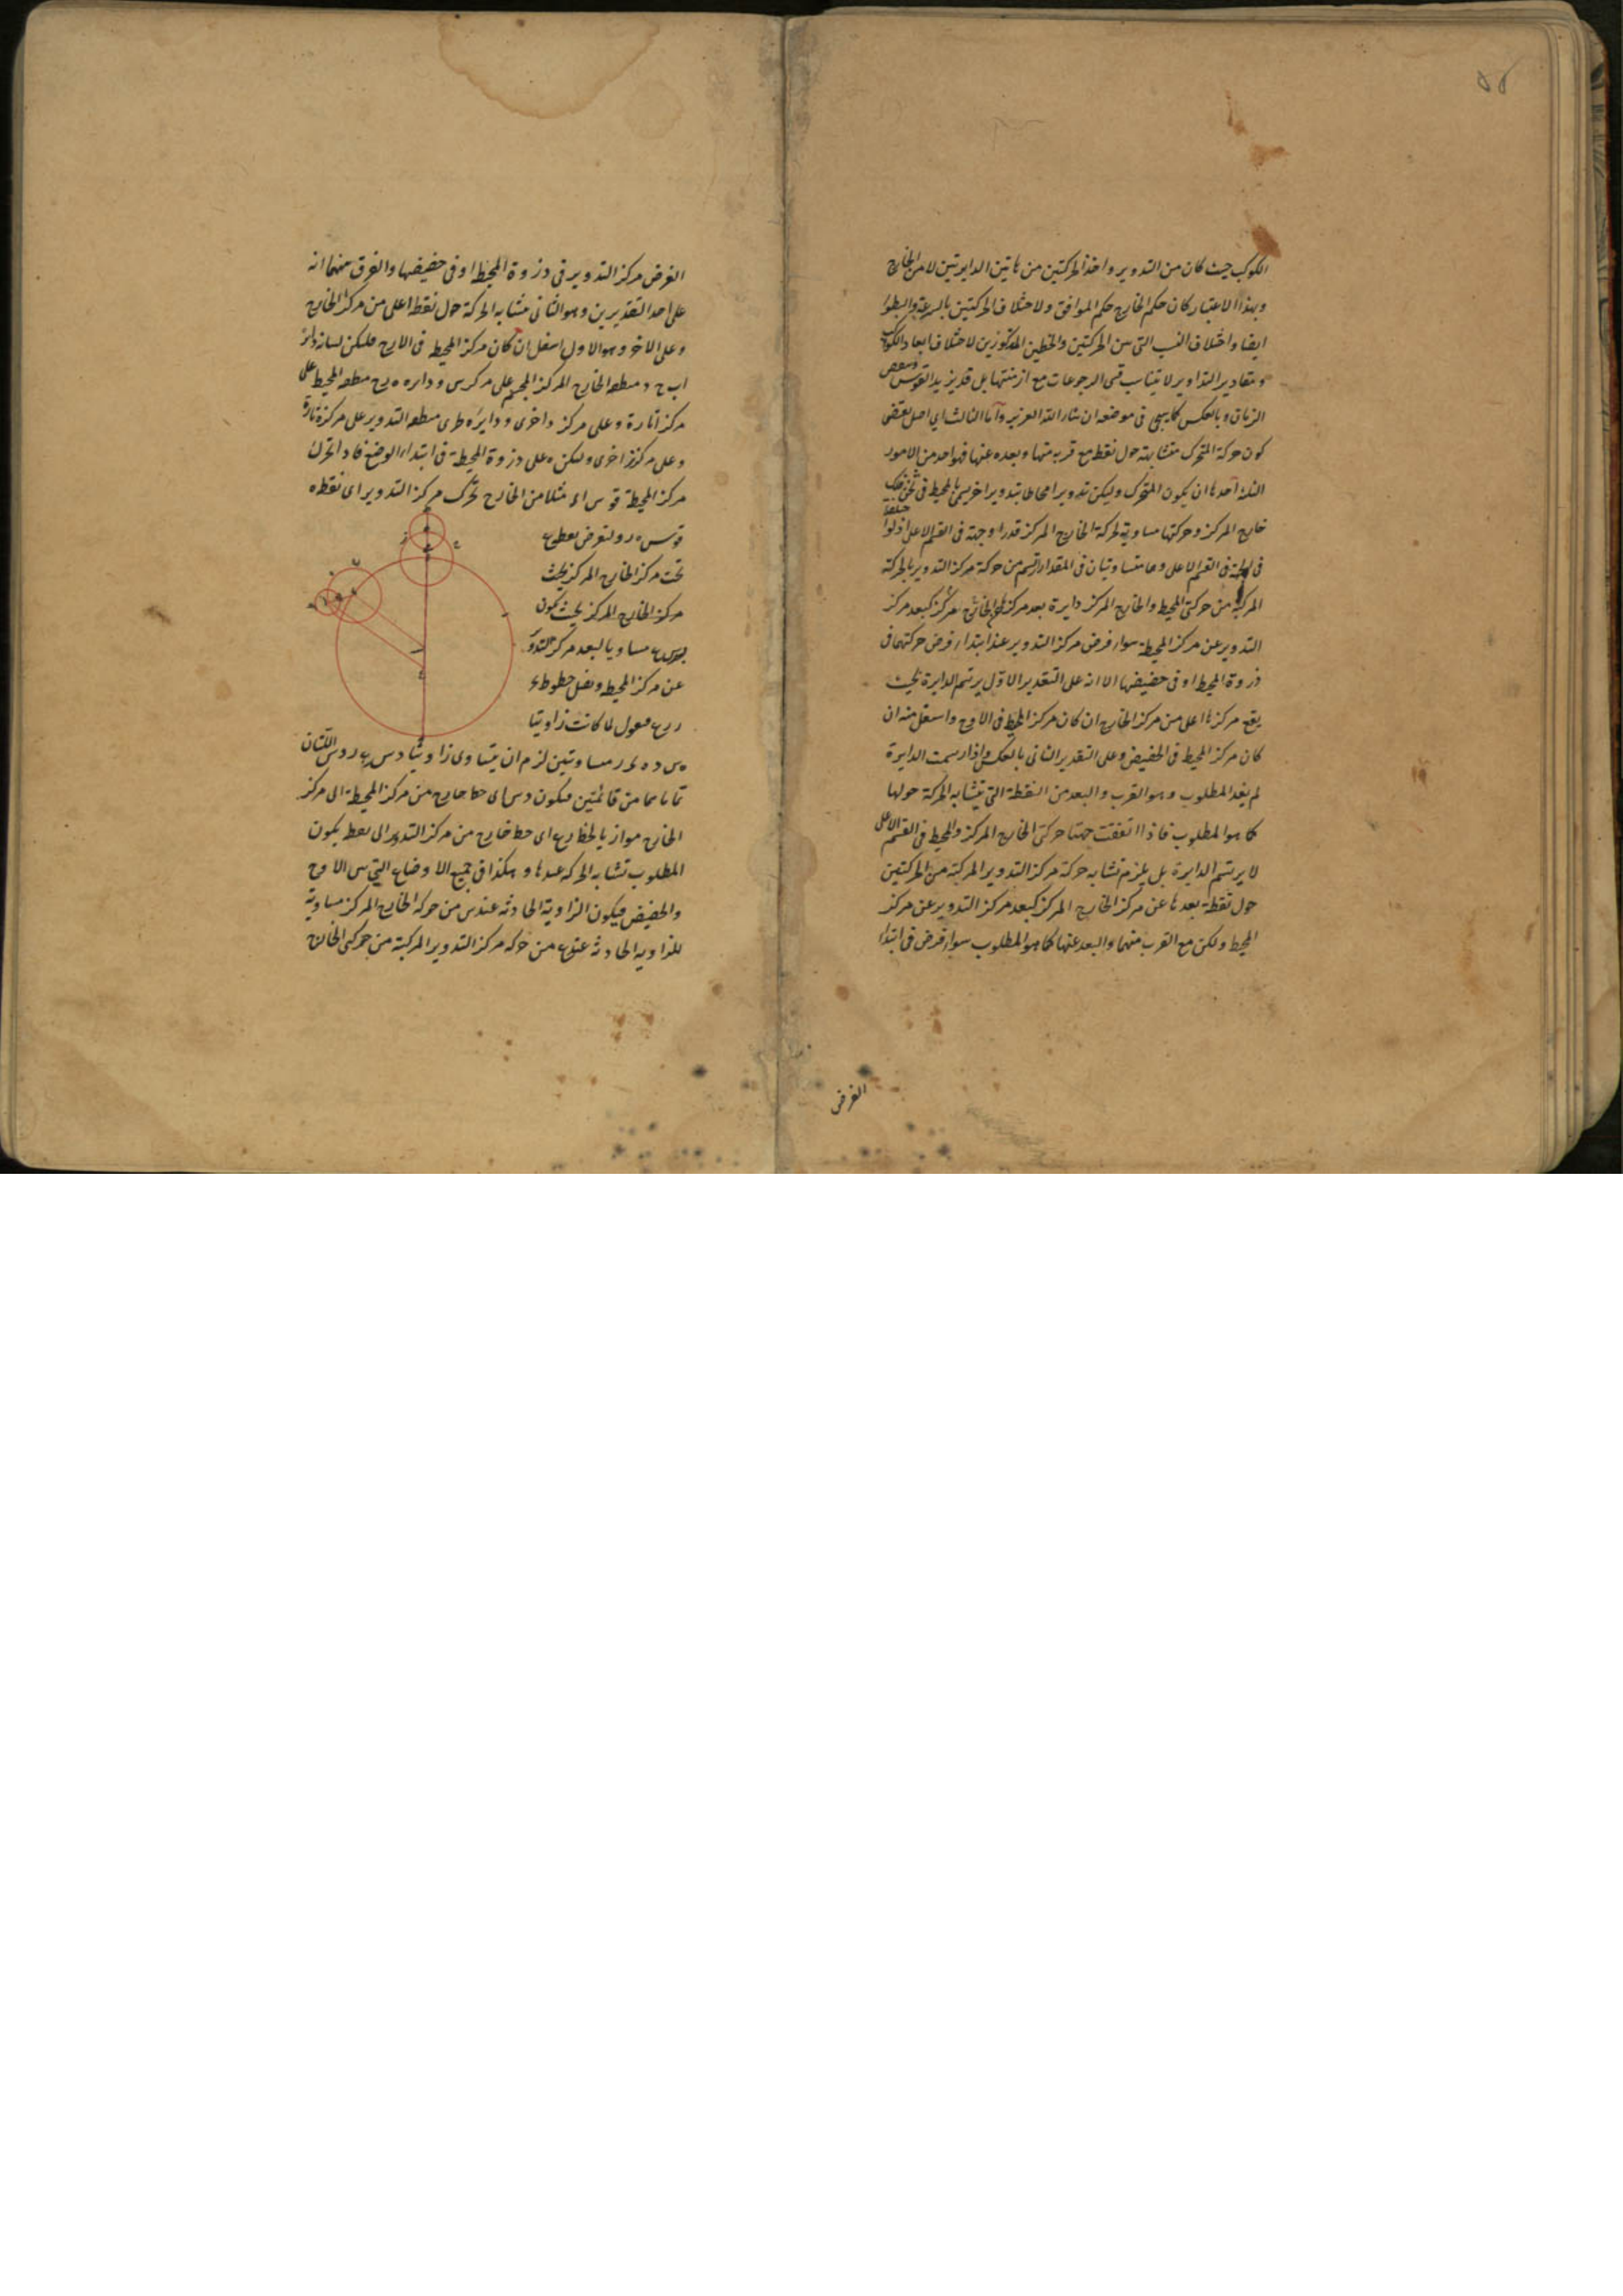 ٥٥
الكوكب حيث كان من التدوير واخذ الحركتين من هاتين الدايرتين لا من الخارج
وبهذا الاعتبار كان حكم الخارج حكم الموافق ولاختلاف الحركتين بالسرعة والبطؤ
ايضا واختلاف النسب التى بين الحركتين والخطين المذكورين لاختلاف ابعاد الكوكب
ومقادير التداوير لا يتناسب قسى الرجوعات مع ازمنتها بل قد يزيد القوس وينقص
الزمان وبالعكس كما يجى فى موضعه ان شاء الله العزيز واما الثالث اى اصل يقتضى
كون حركة المتحرك متشابهة حول نقطة مع قربه منها وبعده عنها فهو احد من الامور
الثلثة احدها ان يكون المتحرك وليكن تدويرا محاطا بتدوير اخر يسمى بالمحيط فى ثخن فلك
خارج المركز وحركتها مساوية لحركة الخارج المركز قدرا وجهة فى القسم الاعلى اذ لو اختلفا
فى الجهة فى القسم الاعلى وهما متساويتان فى المقدار ارتسم من حركة مركز التدوير بالحركة
المركبة من حركتى المحيط والخارج المركز دايرة بعد مركزها عن الخارج المركز كبعد مركز
التدوير عن مركز المحيطة سواء فرض مركز التدوير عند ابتداء فرض حركتهما فى
ذروة المحيط او فى حضيضها الا انه على التقدير الاول يرتسم الدايرة بحيث
يقع مركزها اعلى من مركز الخارج ان كان مركز المحيط فى الاوج واسفل منه ان
كان مركز المحيط فى الحضيض وعلى التقدير الثانى بالعكس واذا رسمت الدايرة
لم يفد المطلوب وهو القرب والبعد من النقطة التى يتشابه الحركة حولها
كما هو المطلوب فاذا اتفقت جهتا حركتى الخارج المركز والمحيط فى القسم الاعلى
لا يرتسم الدايرة بل يلزم تشابه حركة مركز التدوير المركبة من الحركتين
حول نقطة بعدها عن مركز الخارج المركز كبعد مركز التدوير عن مركز
المحيط ولكن مع القرب منها والبعد عنها كما هو المطلوب سواء فرض فى ابتدا
الفرض
الفرض مركز التدوير فى ذروة المحيط او فى حضيضها والفرق بينهما انه
على احد التقديرين وهو الثانى تشابه الحركة حول نقطة اعلى من مركز الخارج
وعلى الاخر وهو الاول اسفل ان كان مركز المحيط فى الاوج فليكن لبيانه دائرة
ا ب ج د منطقة الخارج المركز على مركز س ودايره ه ح منطقة المحيط على
مركز ا تارة وعلى مركز اخرى ودايرة ط ى منطقة التدوير على مركز ه تارة
وعلى مركز ز اخرى وليكن ه على ذروة المحيطة فى ابتداء الوضع فاذا تحرك
مركز المحيطة قوس ا ء مثلا من الخارج تحرك مركز التدوير اى نقطة ه
قوس ه ر ولنفرض نقطة ع
تحت مركز الخارج المركز بحيث
مركز الخارج المركز بحيث يكون
بعد س ع مساويا لبعد مركز التدوير
عن مركز المحيط ونصل خطوط ء
ر ر ع فنقول لما كانت زاويتا
ء س د ه ء ر متساويتين لزم ان يتساوى زاويتا د س ع ر د س اللتان
تماماهما من قائمتين فيكون د س اى خط خارج من مركز المحيطة الى مركز
الخارج موازيا لخط ر ع اى خط خارج من مركز التدوير الى نقطة يكون
المطلوب تشابه الحركة عندها وهكذا فى جميع الاوضاع التى بين الاوج
والحضيض فيكون الزاوية الحادثة عند س من حركة الخارج المركز مساوية
للزاوية الحادثة عند ع من حركة مركز التدوير المركبة من حركتى الخارج